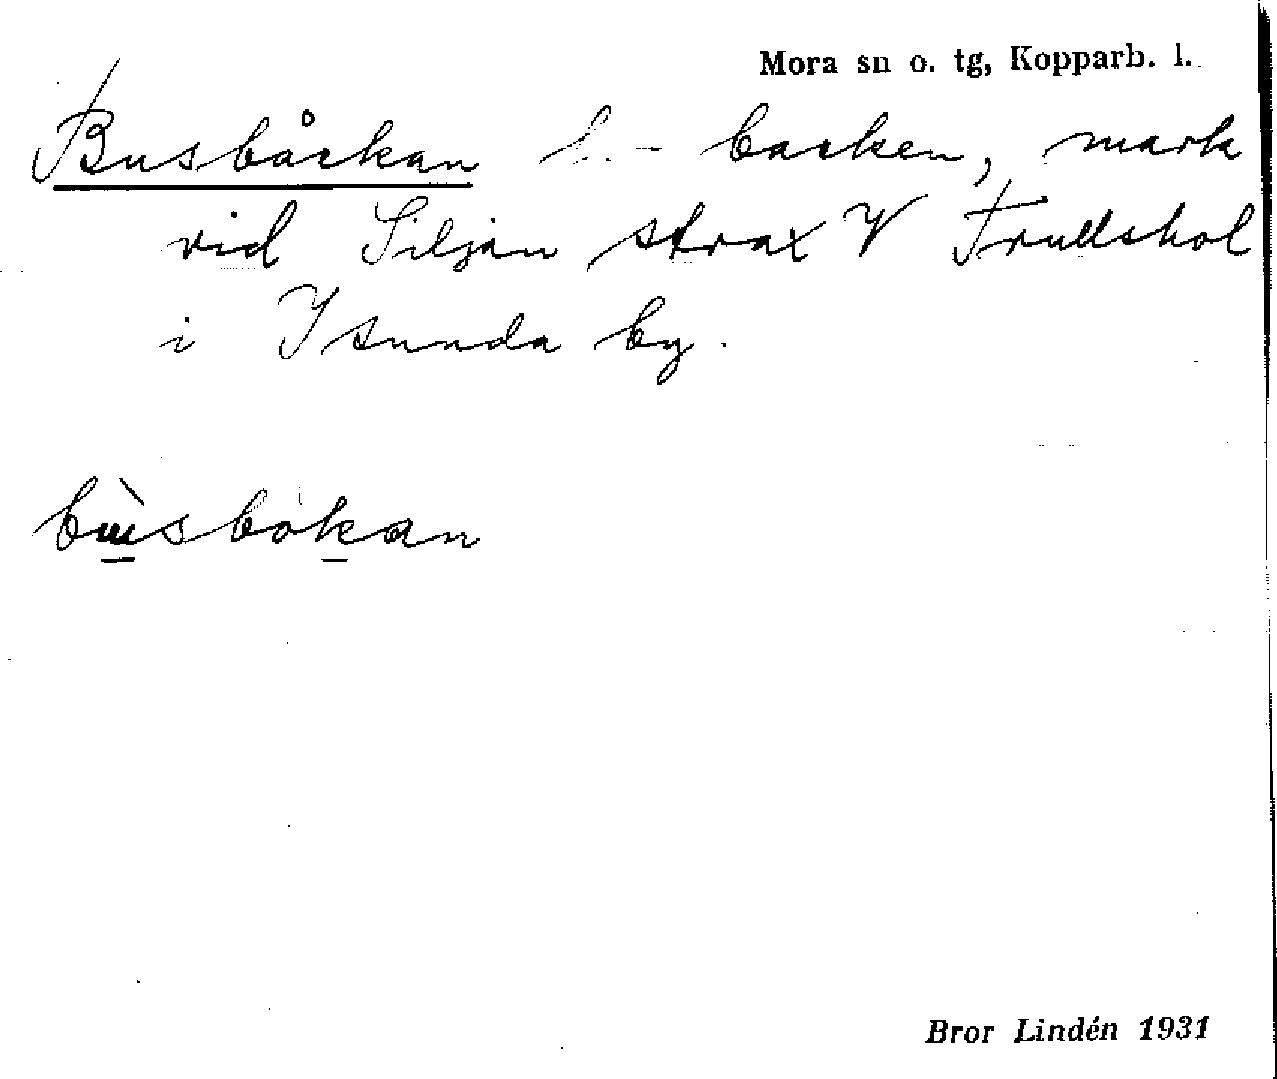 Mora sn o. tg, Kopparb. l.
Busbåckan l. - backen, mark
vid Siljan strax V Trullshol
i Isunda by.
bùsbokan
Bror Lindén 1931